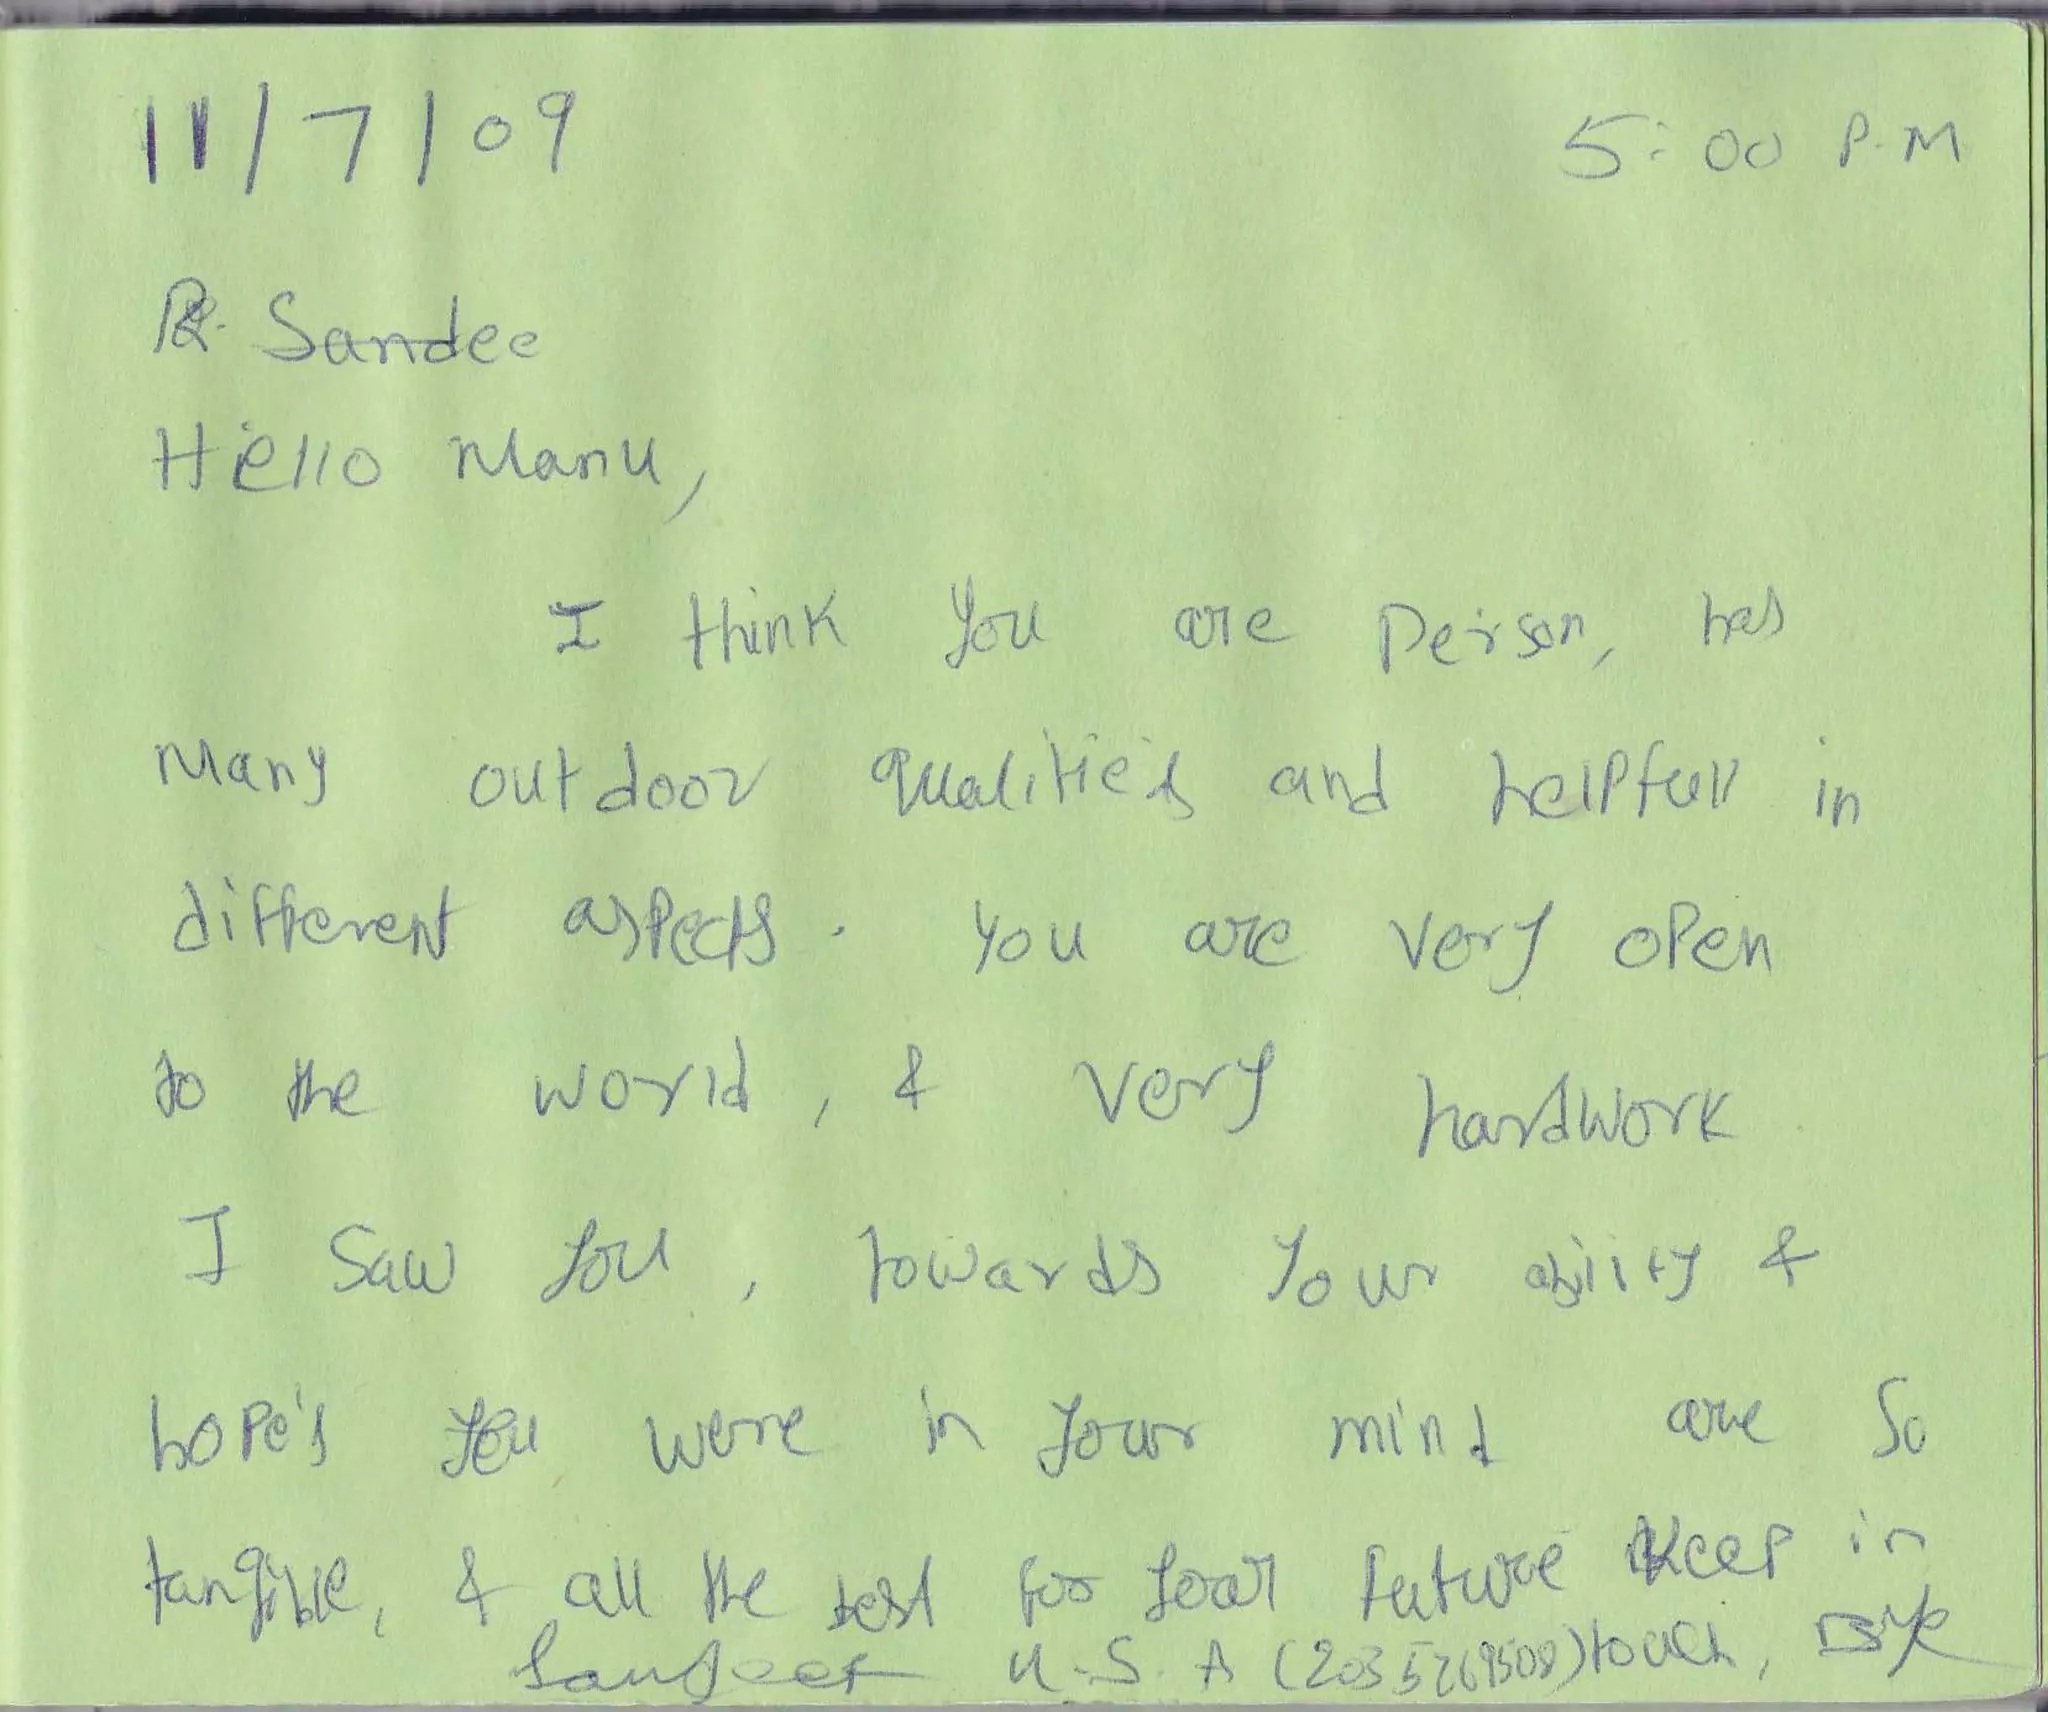 11/7/09 5:00 P.M
Sandee
Hello Manu,
I think you are person, has
many outdoor qualities and helpfull in
different aspects. you are very open
to the world, & very hardwork.
I saw you, towards your ability &
hope's you were in your mind are so
tangible, & all the best for your future keep in
Sanjeet U.S.A (2035269508) touch, Bye